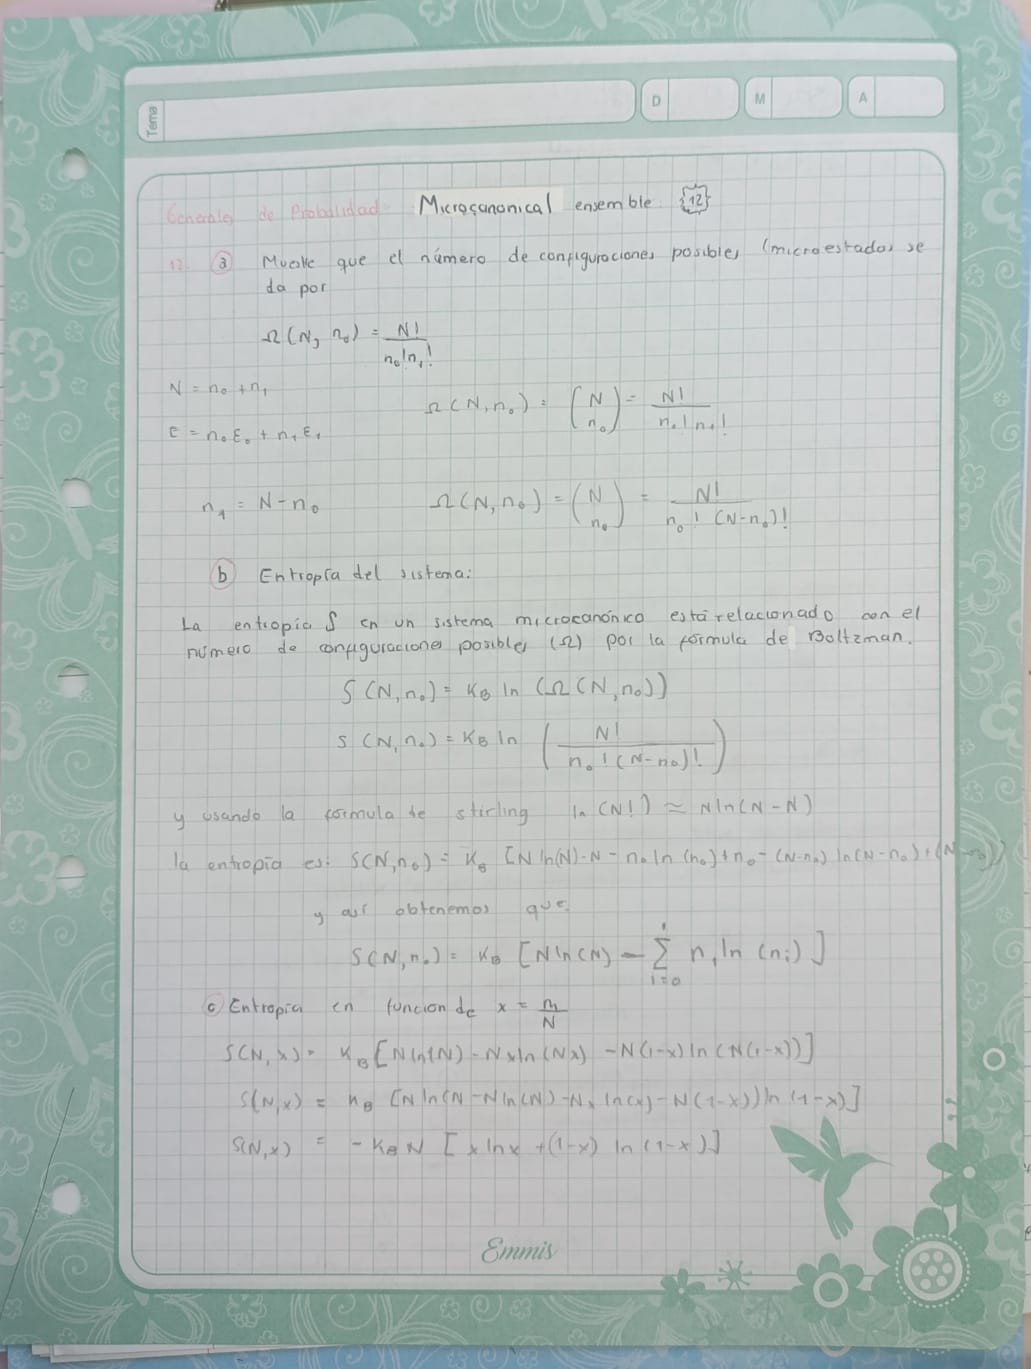 Tema
D
M
A
de Probabilidad Microcanonical ensemble {12}
12. a Mueste que el número de configuraciones posibles (microestados se
da por
Ω(N, n₀) = N!/(n₀! n₁!)
N = n₀ + n₁
Ω(N, n₀) = (N n₀) = N!/(n₀! n₁!)
E = n₀ε₀ + n₁ε₁
n₁ = N - n₀
Ω(N, n₀) = (N n₀) = N!/(n₀! (N-n₀)!)
b Entropía del sistema:
La entropía S en un sistema microcanónico está relacionado con el
número de configuraciones posibles (Ω) por la fórmula de Boltzman.
S(N, n₀) = K_B ln (Ω(N, n₀))
S(N, n₀) = K_B ln (N!/(n₀! (N-n₀)!))
y usando la fórmula de stirling ln(N!) ≈ N ln(N-N)
la entropía es: S(N, n₀) = K_B [N ln(N) - N - n₀ ln(n₀) + n₀ - (N-n₀) ln(N-n₀) + (N-n₀)]
y así obtenemos que:
S(N, n₀) = K_B [N ln(N) - Σ i=0 nᵢ ln(nᵢ)]
c Entropía en funcion de x = n₁/N
S(N, x) = K_B [N ln(N) - Nx ln(Nx) - N(1-x) ln(N(1-x))]
S(N, x) = K_B [N ln(N - N ln(N) - Nx ln(x) - N(1-x)) ln(1-x)]
S(N, x) = - K_B N [x ln x + (1-x) ln(1-x)]
Emmis